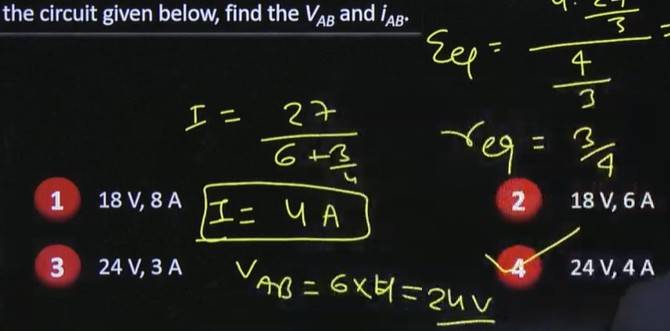 the circuit given below, find the V_AB and i_AB.
3
Eeq = / 4/3 =
I = 27 / 6 + 3/4
req = 3/4
1 18 V, 8 A
I = 4 A
2 18 V, 6 A
3 24 V, 3 A
4 24 V, 4 A
V_AB = 6 x 4 = 24 V